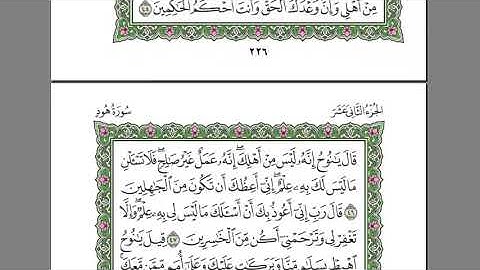 مِنْ أَهْلِي وَإِنَّ وَعْدَكَ ٱلْحَقُّ وَأَنتَ أَحْكَمُ ٱلْحَٰكِمِينَ ٤٥
٢٢٦
الجزء الثاني عشر سورة هود
قَالَ يَٰنُوحُ إِنَّهُۥ لَيْسَ مِنْ أَهْلِكَ ۖ إِنَّهُۥ عَمَلٌ غَيْرُ صَٰلِحٍ ۖ فَلَا تَسْـَٔلْنِ
مَا لَيْسَ لَكَ بِهِۦ عِلْمٌ ۖ إِنِّيٓ أَعِظُكَ أَن تَكُونَ مِنَ ٱلْجَٰهِلِينَ
٤٦ قَالَ رَبِّ إِنِّيٓ أَعُوذُ بِكَ أَنْ أَسْـَٔلَكَ مَا لَيْسَ لِي بِهِۦ عِلْمٌ ۖ وَإِلَّا
تَغْفِرْ لِي وَتَرْحَمْنِيٓ أَكُن مِّنَ ٱلْخَٰسِرِينَ ٤٧ قِيلَ يَٰنُوحُ
ٱهْبِطْ بِسَلَٰمٍ مِّنَّا وَبَرَكَٰتٍ عَلَيْكَ وَعَلَىٰٓ أُمَمٍ مِّمَّن مَّعَكَ ۚ